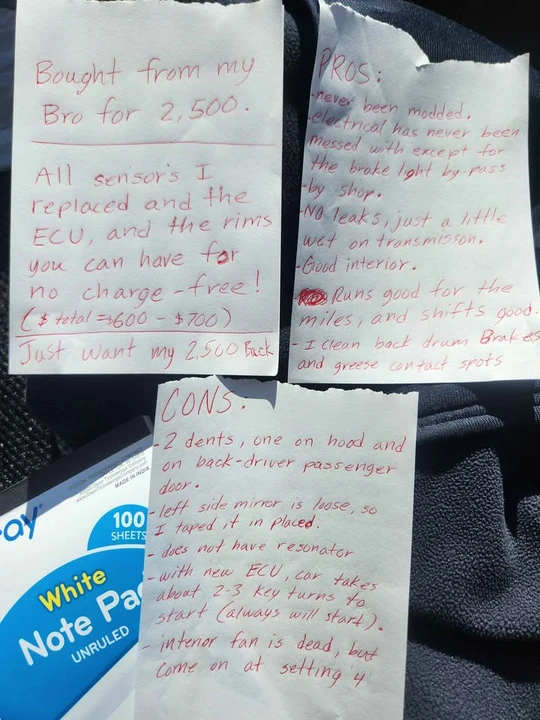 Bought from my
Bro for 2,500.
All sensor's I
replaced and the
ECU, and the rims
you can have for
no charge-free!
($ total = $600 - $700)
Just want my 2,500 Back
PROS:
-never been modded.
-electrical has never been
messed with except for
the brake light by-pass
-by shop.
-NO leaks, just a little
wet on transmisson.
-Good interior.
- Runs good for the
miles, and shifts good.
- I clean back drum Brakes
and greese contact spots
CONS.
- 2 dents, one on hood and
on back-driver passenger
door.
-left side mirror is loose, so
I taped it in placed.
- does not have resonator
-with new ECU, car takes
about 2-3 key turns to
start (always will start).
- interior fan is dead, but
come on at setting '4'
MADE IN INDIA
ay
100
SHEETS
White
Note Pa
UNRULED